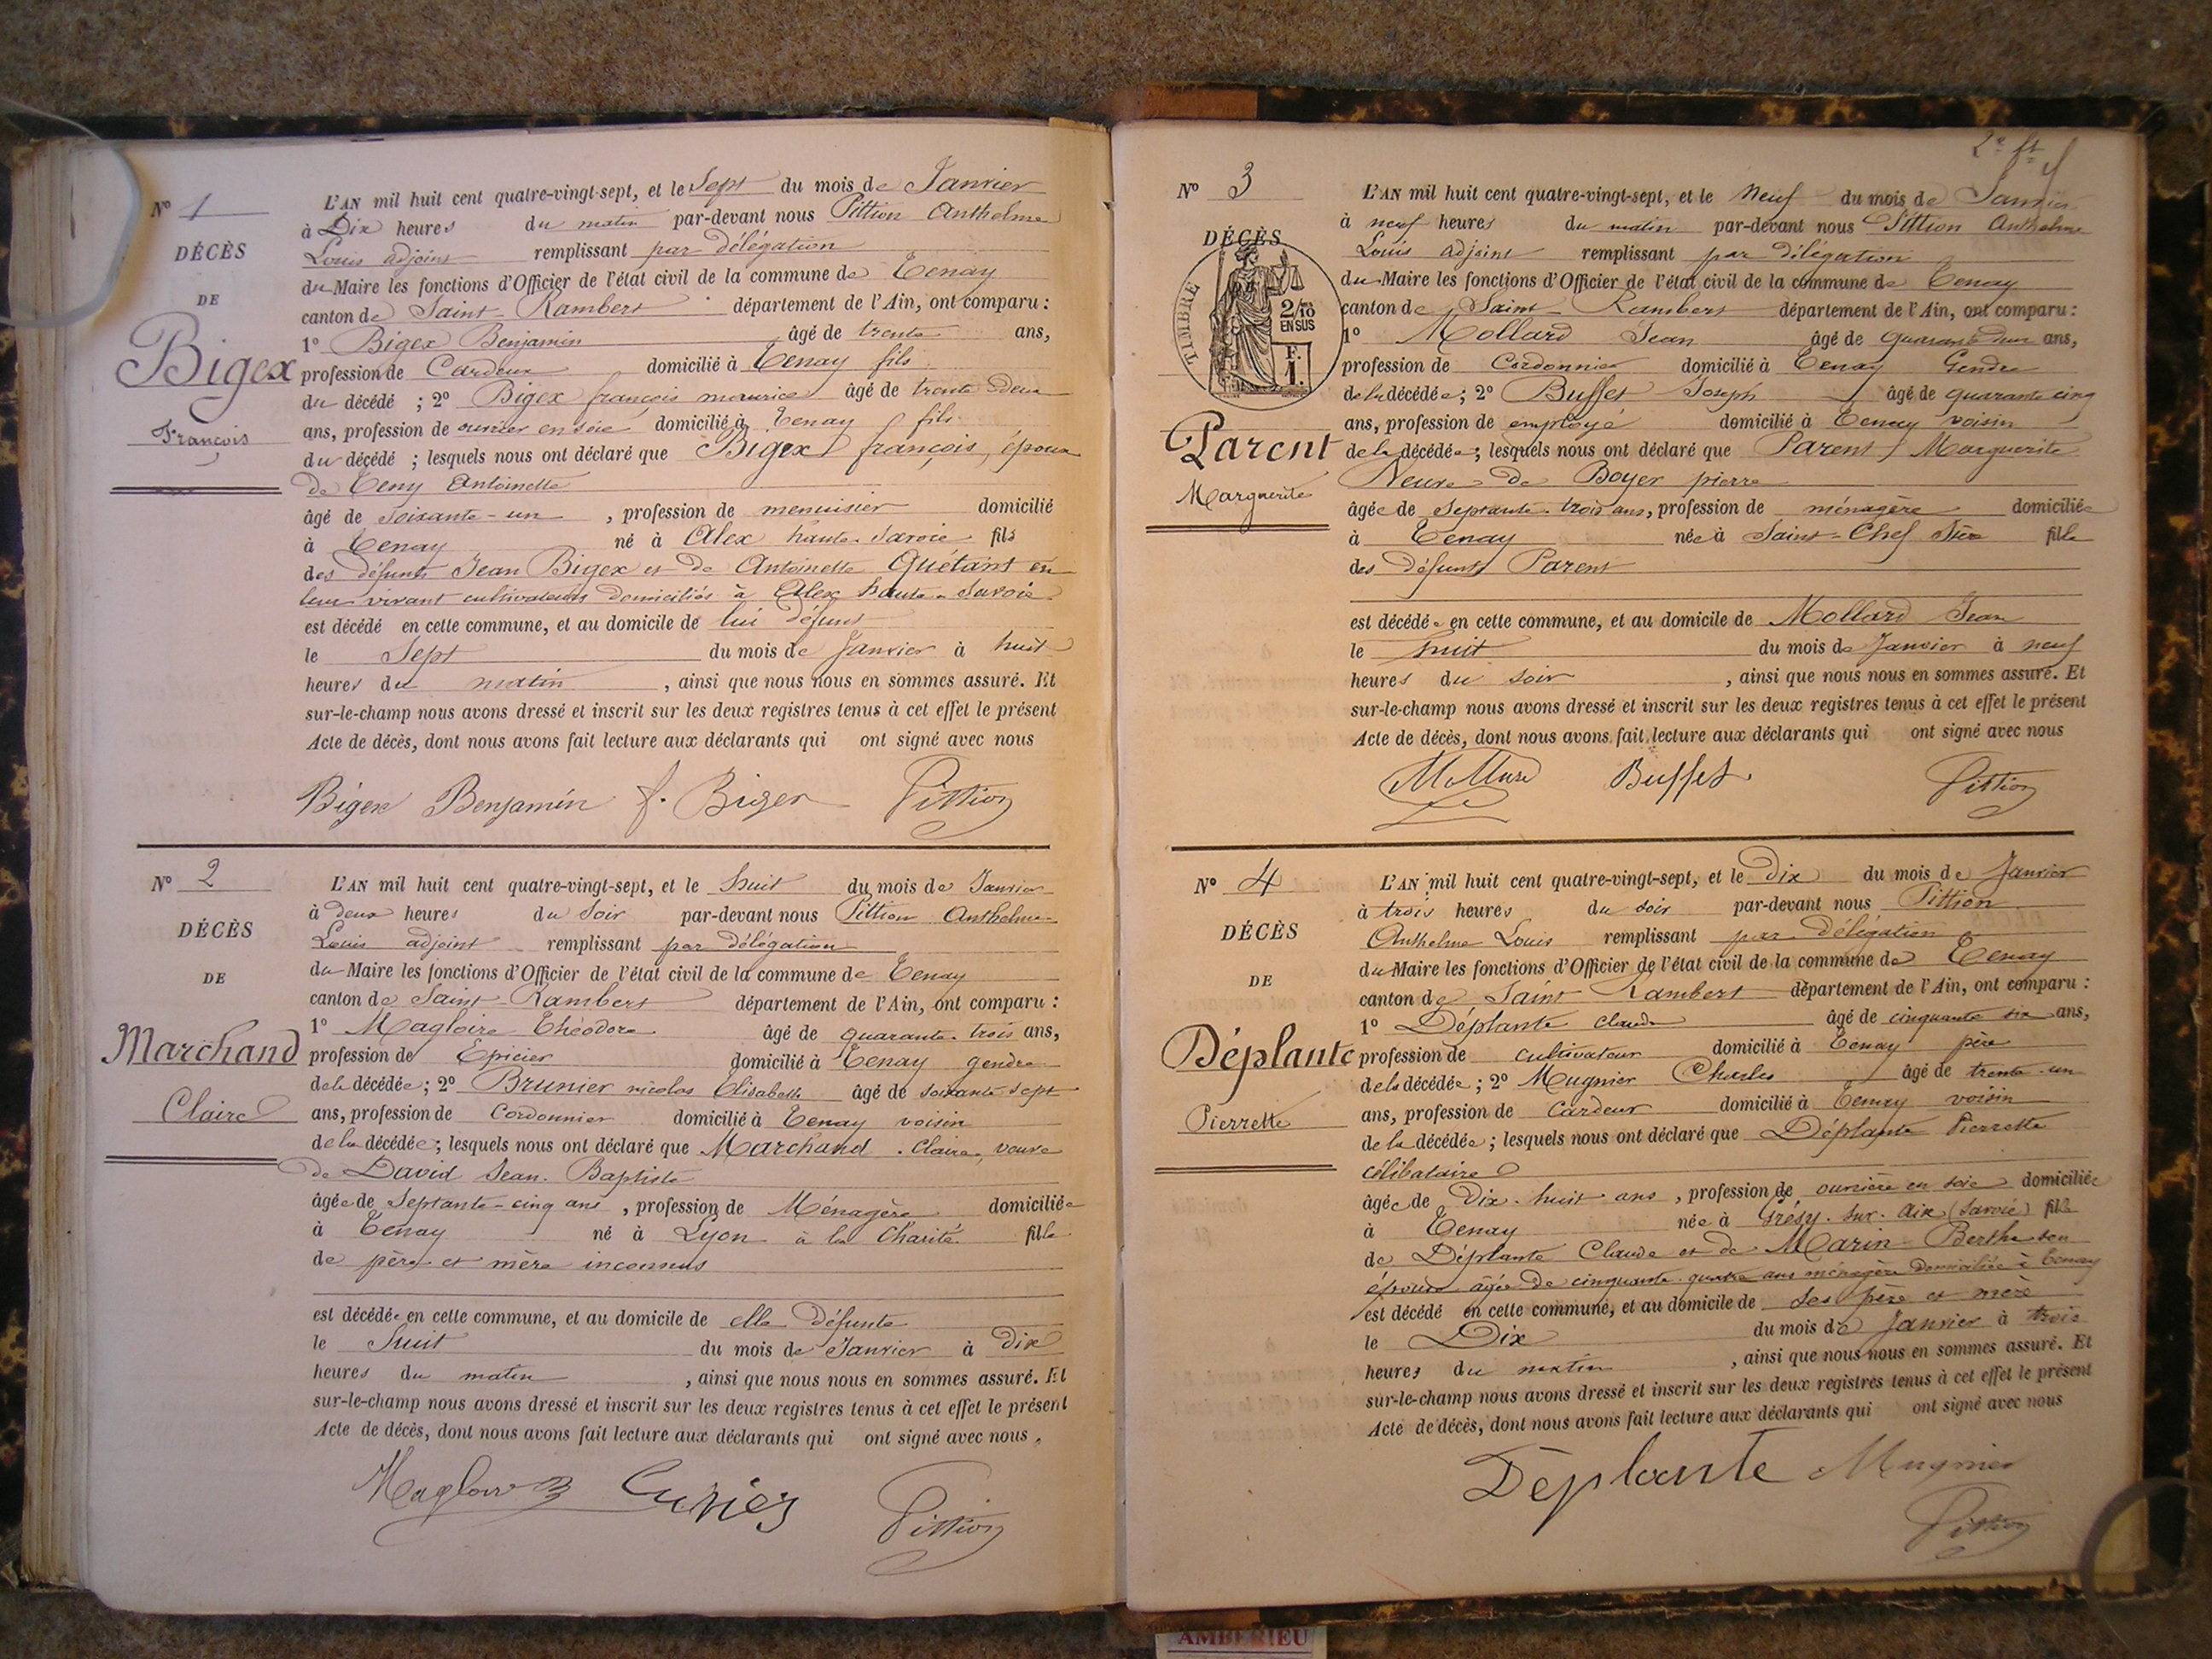 N° 1
DÉCÈS
DE
Bigex
François
L'AN mil huit cent quatre-vingt-sept, et le Sept du mois de Janvier
à Dix heures du matin par-devant nous Pittion Anthelme
Louis adjoint remplissant par délégation
du Maire les fonctions d'Officier de l'état civil de la commune de Tenay
canton de Saint-Rambert département de l'Ain, ont comparu :
1° Bigex Benjamin âgé de trente ans,
profession de Cardeur domicilié à Tenay fils
du décédé ; 2° Bigex françois maurice âgé de trente deux
ans, profession de ouvrier en soie domicilié à Tenay fils
du décédé ; lesquels nous ont déclaré que Bigex françois, époux
de Teny Antoinette
âgé de soixante-un , profession de menuisier domicilié
à Tenay né à Alex haute-Savoie fils
des défunts Jean Bigex et de Antoinette Quétant en
leur vivant cultivateurs domiciliés à Alex haute-Savoie
est décédé en cette commune, et au domicile de lui défunt
le Sept du mois de Janvier à huit
heures du matin , ainsi que nous nous en sommes assuré. Et
sur-le-champ nous avons dressé et inscrit sur les deux registres tenus à cet effet le présent
Acte de décès, dont nous avons fait lecture aux déclarants qui ont signé avec nous
Bigex Benjamin f. Bigex Pittion
N° 2
DÉCÈS
DE
Marchand
Claire
L'AN mil huit cent quatre-vingt-sept, et le huit du mois de Janvier
à deux heures du soir par-devant nous Pittion Anthelme
Louis adjoint remplissant par délégation
du Maire les fonctions d'Officier de l'état civil de la commune de Tenay
canton de Saint-Rambert département de l'Ain, ont comparu :
1° Magloire Théodore âgé de quarante-trois ans,
profession de Epicier domicilié à Tenay gendre
de la décédée ; 2° Brunier nicolas Elisabeth âgé de soixante-sept
ans, profession de Cordonnier domicilié à Tenay voisin
de la décédée ; lesquels nous ont déclaré que Marchand Claire, veuve
de David Jean-Baptiste
âgée de Septante-cinq ans , profession de Ménagère domiciliée
à Tenay né à Lyon à la Charité fille
de père et mère inconnus
est décédée en cette commune, et au domicile de elle défunte
le huit du mois de Janvier à dix
heures du matin , ainsi que nous nous en sommes assuré. Et
sur-le-champ nous avons dressé et inscrit sur les deux registres tenus à cet effet le présent
Acte de décès, dont nous avons fait lecture aux déclarants qui ont signé avec nous.
Pittion
2e ft
N° 3
DÉCÈS
TIMBRE
2/10
EN SUS
F.
1.
Parent
Marguerite
L'AN mil huit cent quatre-vingt-sept, et le Neuf du mois de Janvier
à neuf heures du matin par-devant nous Pittion Anthelme
Louis adjoint remplissant par délégation
du Maire les fonctions d'Officier de l'état civil de la commune de Tenay
canton de Saint-Rambert département de l'Ain, ont comparu :
1° Mollard Jean âgé de quarante deux ans,
profession de Cordonnier domicilié à Tenay Gendre
de la décédée ; 2° Buffet Joseph âgé de quarante cinq
ans, profession de employé domicilié à Tenay voisin
de la décédée ; lesquels nous ont déclaré que Parent Marguerite
Veuve de Boyer pierre
âgée de Septante-trois ans, profession de ménagère domiciliée
à Tenay née à Saint-Chef Isère fille
des défunts Parent
est décédée en cette commune, et au domicile de Mollard Jean
le huit du mois de Janvier à neuf
heures du soir , ainsi que nous nous en sommes assuré. Et
sur-le-champ nous avons dressé et inscrit sur les deux registres tenus à cet effet le présent
Acte de décès, dont nous avons fait lecture aux déclarants qui ont signé avec nous
Buffet Pittion
N° 4
DÉCÈS
DE
Déplante
Pierrette
L'AN mil huit cent quatre-vingt-sept, et le Dix du mois de Janvier
à trois heures du soir par-devant nous Pittion
Anthelme Louis remplissant par délégation
du Maire les fonctions d'Officier de l'état civil de la commune de Tenay
canton de Saint Rambert département de l'Ain, ont comparu :
1° Déplante claude âgé de cinquante six ans,
profession de cultivateur domicilié à Tenay père
de la décédée ; 2° Mugnier Charles âgé de trente-un
ans, profession de Cardeur domicilié à Tenay voisin
de la décédée ; lesquels nous ont déclaré que Déplante Pierrette
célibataire
âgée de Dix-huit ans , profession de ouvrière en soie domiciliée
à Tenay née à Grésy-sur-Aix (Savoie) fille
de Déplante Claude et de Marin Berthe son
épouse âgée de cinquante-quatre ans ménagère domiciliée à Tenay
est décédé en cette commune, et au domicile de ses père et mère
le Dix du mois de Janvier à trois
heures du matin , ainsi que nous nous en sommes assuré. Et
sur-le-champ nous avons dressé et inscrit sur les deux registres tenus à cet effet le présent
Acte de décès, dont nous avons fait lecture aux déclarants qui ont signé avec nous
Déplante Mugnier
Pittion
AMBERIEU